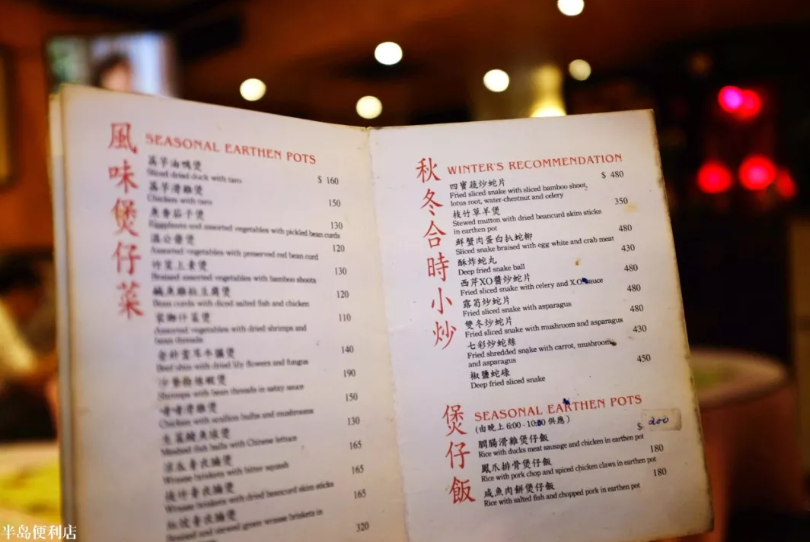 風味煲仔菜
SEASONAL EARTHEN POTS
Sliced dried duck with taro
$ 160
Chicken with taro
150
Eggplants and assorted vegetables with pickled bean curds
130
Assorted vegetables with preserved red bean curd
120
竹笙上素煲
Braised assorted vegetables with bamboo shoots
130
鹹魚雞粒豆腐煲
Bean curds with diced salted fish and chicken
120
Assorted vegetables with dried shrimps and
bean threads
110
Beef shin with dried lily flowers and fungus
140
Shrimps with bean threads in satay sauce
190
Chicken with scallion bulbs and mushrooms
150
Mashed fish balls with Chinese lettuce
130
Brisket with bitter squash
165
with dried beancurd skin sticks
165
165
320
秋冬合時小炒
WINTER'S RECOMMENDATION
四寶蔬炒蛇片
$ 480
Fried sliced snake with sliced bamboo shoot,
lotus root, water-chestnut and celery
枝竹草羊煲
350
Stewed mutton with dried beancurd skin sticks
in earthen pot
鮮蟹肉蛋白扒蛇柳
480
Sliced snake braised with egg white and crab meat
酥炸蛇丸
430
Deep fried snake ball
西芹XO醬炒蛇片
480
Fried sliced snake with celery and X.O. sauce
露筍炒蛇片
480
Fried sliced snake with asparagus
雙冬炒蛇片
480
Fried sliced snake with mushroom and asparagus
七彩炒蛇絲
430
Fried shredded snake with carrot, mushroom
and asparagus
椒鹽蛇碌
450
Deep fried sliced snake
煲仔飯
SEASONAL EARTHEN POTS
(由晚上 6:00 - 10:00 供應)
膶腸滑雞煲仔飯
$ 200
Rice with ducks meat sausage and chicken in earthen pot
鳳爪排骨煲仔飯
180
Rice with pork chop and spiced chicken claws in earthen pot
咸魚肉餅煲仔飯
180
Rice with salted fish and chopped pork in earthen pot
半岛便利店